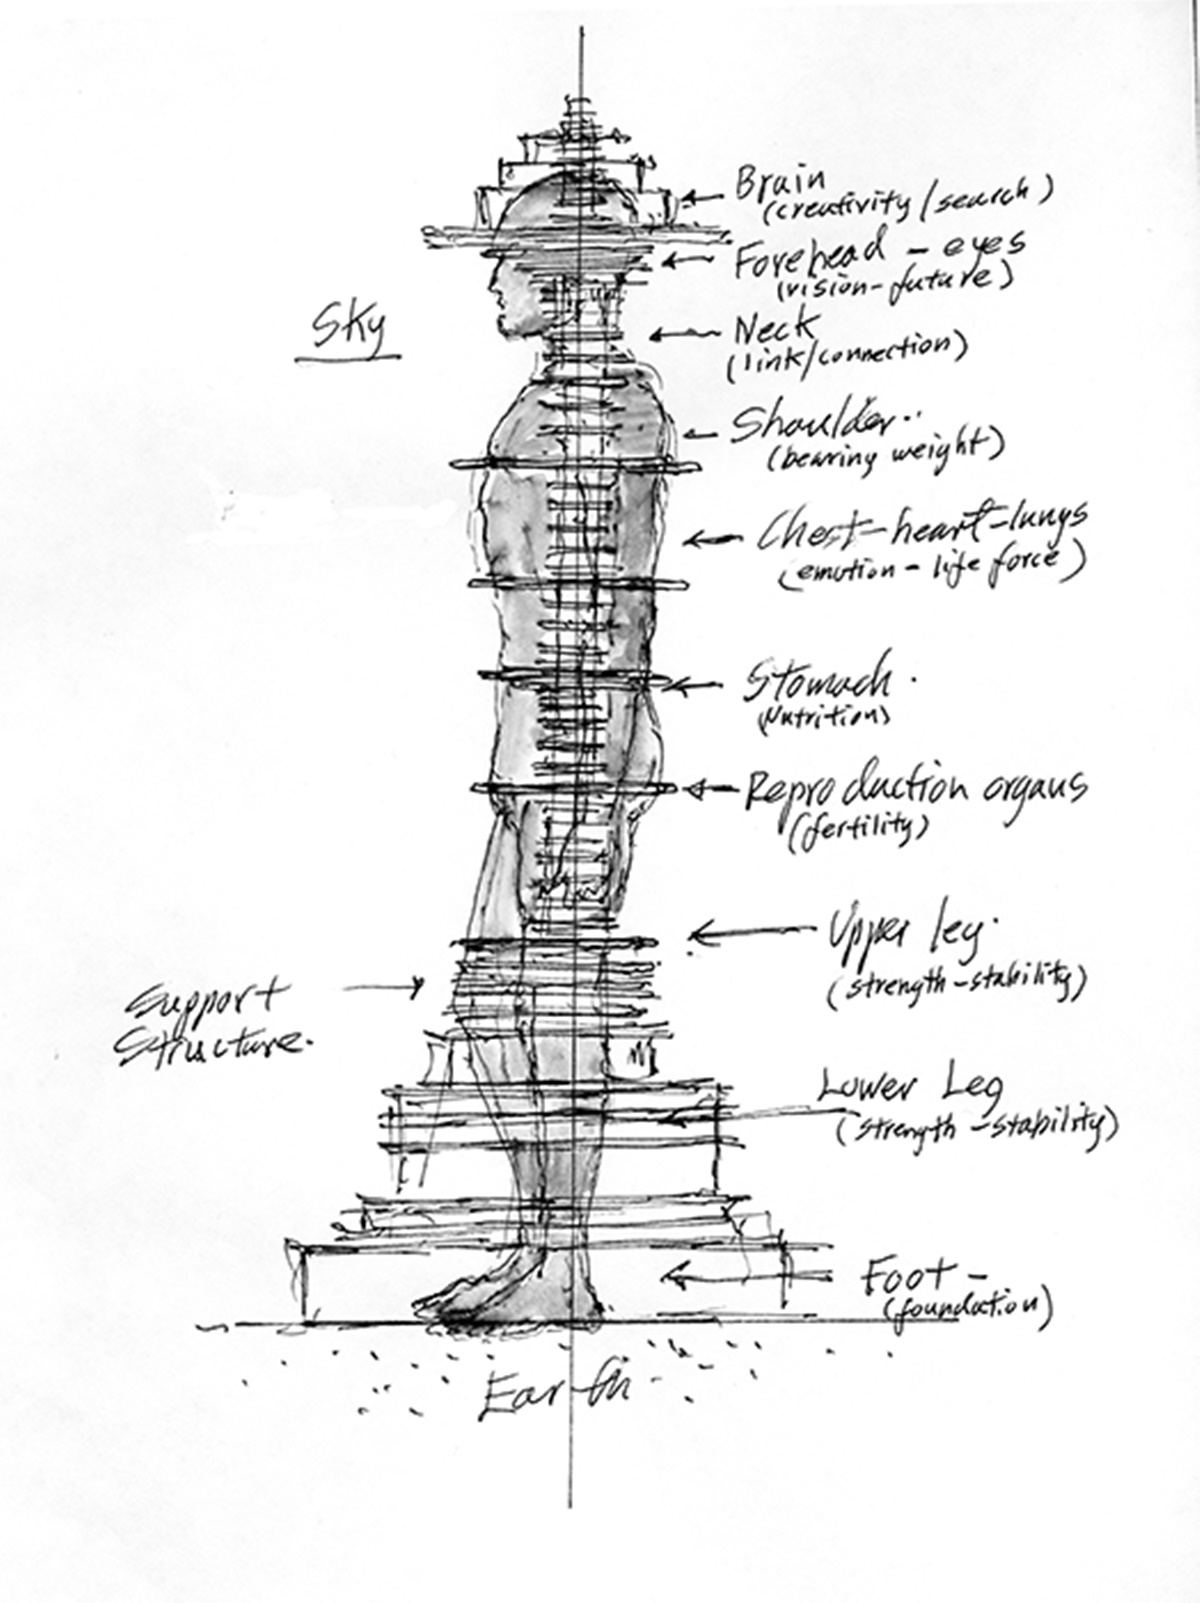 Brain
(creativity/search)
Forehead - eyes
(vision-future)
Sky
Neck
(link/connection)
Shoulder
(bearing weight)
Chest-heart-lungs
(emotion - life force)
Stomach
(Nutrition)
Reproduction organs
(fertility)
Upper leg
(strength-stability)
Support
Structure.
Lower Leg
(strength-stability)
Foot -
(foundation)
Earth